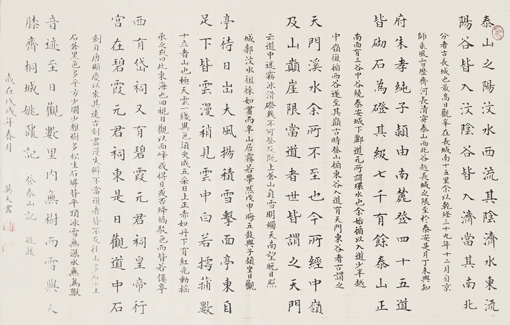 泰山之陽汶水西流其陰濟水東流
陽谷皆入汶陰谷皆入濟當其南北
分者古長城也最高日觀峯在長城南十五里余以乾隆三十九年十二月自京
師乘風雪歷齊河長清穿泰山西北谷越長城之限至於泰安是月丁未與知
府朱孝純子潁由南麓登四十五道
皆砌石為磴其級七千有餘泰山正
南面有三谷中谷繞泰安城下酈道元所謂環水也余始循以入道少半越
中嶺復循西谷遂至其巔古時登山循東谷入道有天門東谷者古謂之
天門溪水余所不至也今所經中嶺
及山巔崖限當道者世皆謂之天門
云道中迷霧冰滑磴幾不可登及既上蒼山負雪明燭天南望晚日照
城郭汶水徂徠如畫而半山居霧若帶然戊申晦五鼓與子潁坐日觀
亭待日出大風揚積雪擊面亭東自
足下皆雲漫稍見雲中白若摴蒱數
十立者山也極天雲一綫異色須臾成五采日上正赤如丹下有紅光動搖
承之或曰此東海也回視日觀以西峰或得日或否絳皜駁色而皆若僂亭
西有岱祠又有碧霞元君祠皇帝行
宮在碧霞元君祠東是日觀道中石
刻自唐顯慶以來其遠古刻盡漫失僻不當道者皆不及往山多石少土
石蒼黑色多平方少圜少雜樹多松生石罅皆平頂冰雪無瀑水無鳥獸
音迹至日觀數里內無樹而雪與人
膝齊桐城姚鼐記 登泰山記 姚鼐
歲在戊戌年春月